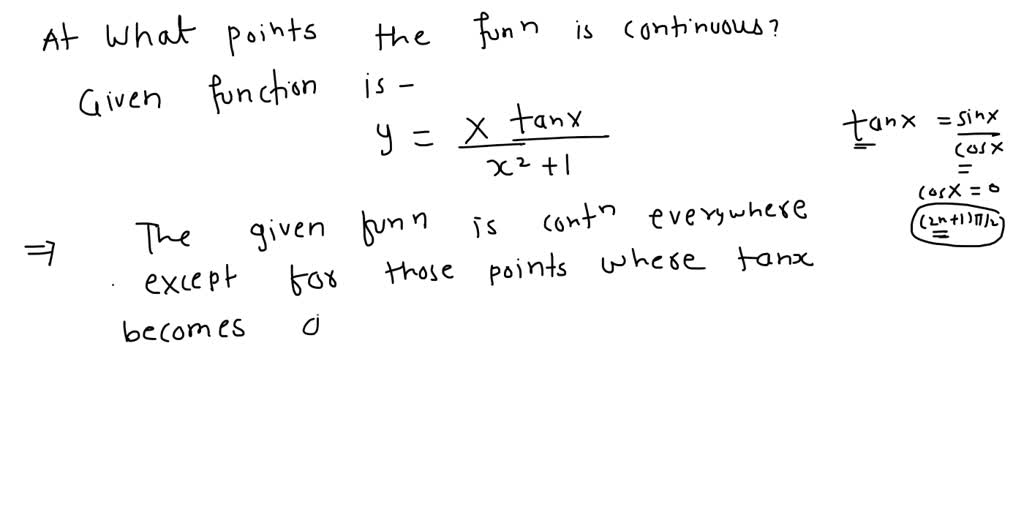 At What points the funn is continuous?
Given function is -
y = x tanx / x² + 1
tanx = sinx / cosx
=
cosx = 0
(2n+1)π/2
⇒ The given funn is contn everywhere
except for those points where tanx
becomes